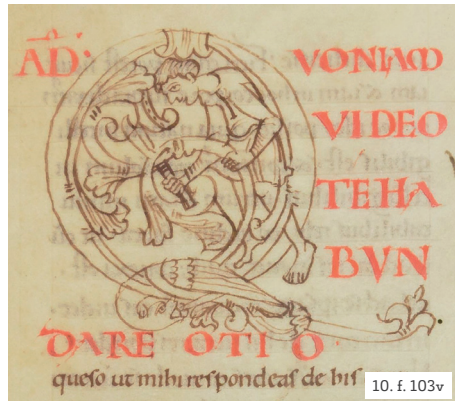 AD:
QVONIAM
VIDEO
TE HA
BVN
DARE OTIO
queso ut mihi respondeas de his
10. f. 103v